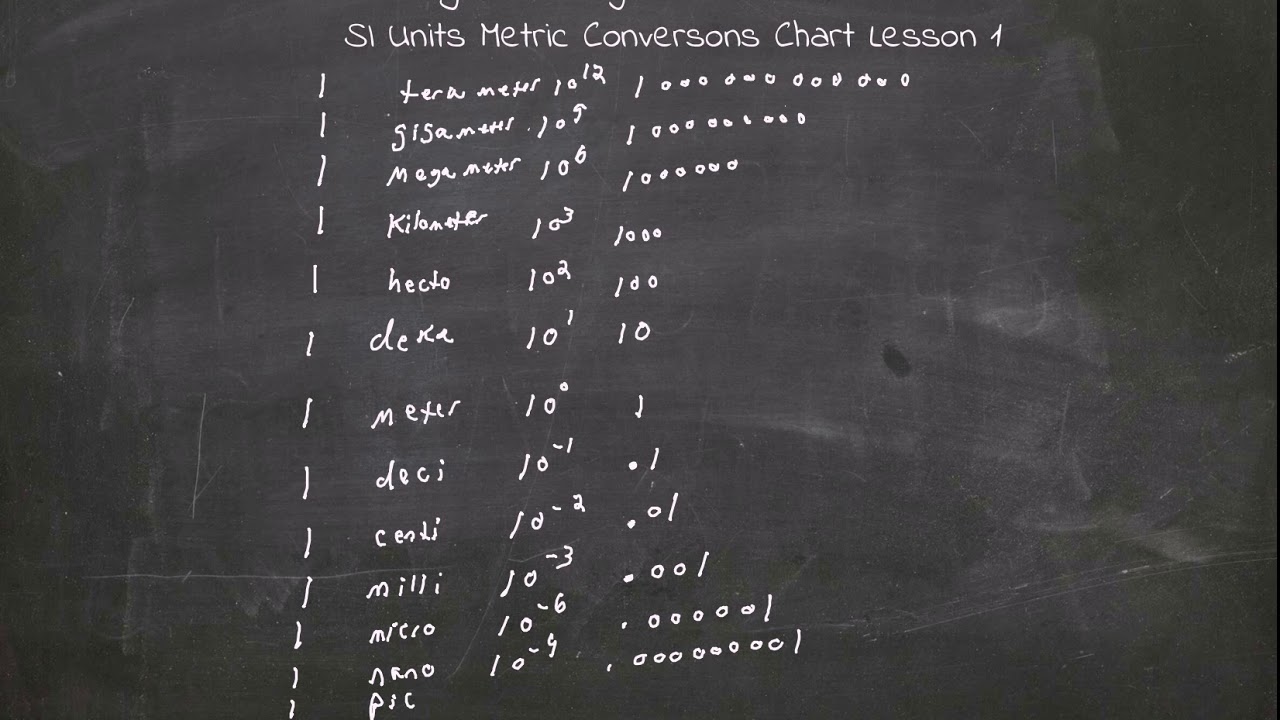 SI Units Metric Conversons Chart Lesson 1
1 tera meter 10^12 1 000 000 000 000
1 gigameter 10^9 1 000 000 000
1 Mega meter 10^6 1000000
1 Kilometer 10^3 1000
1 hecto 10^2 100
1 deka 10^1 10
1 meter 10^0 1
1 deci 10^-1 .1
1 centi 10^-2 .01
1 milli 10^-3 .001
1 micro 10^-6 .000001
1 nano 10^-9 .000000001
1 pic